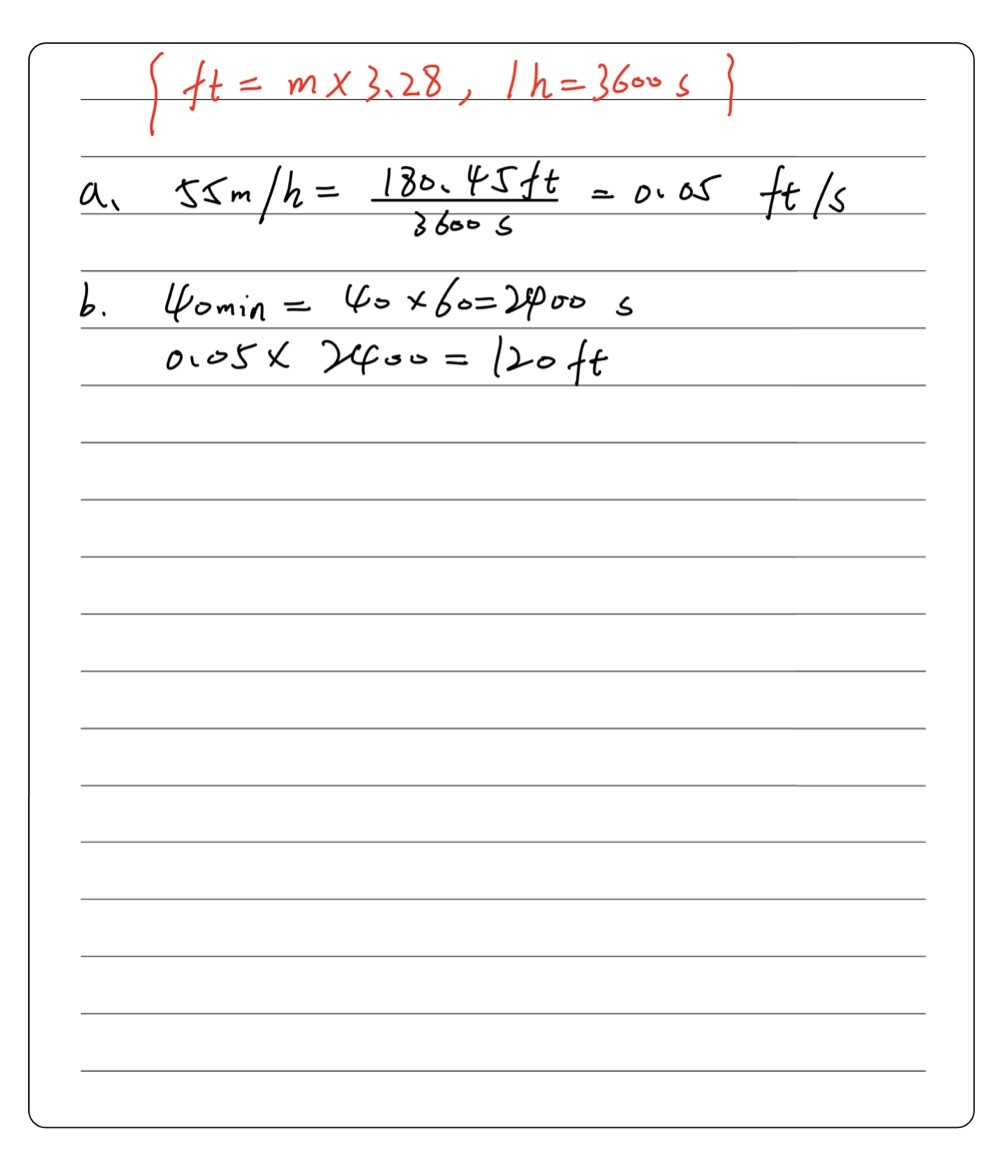 { ft = m × 3.28 , 1h = 3600 s }
a、 55m/h = 180.45ft / 3600 s = 0.05 ft/s
b. 40min = 40 × 60 = 2400 s
0.05 × 2400 = 120 ft